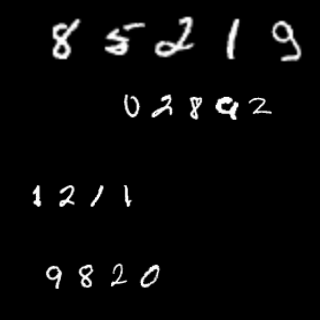 8 5 2 1 9
0 2 8 9 2
1 2 1 1
9 8 2 0